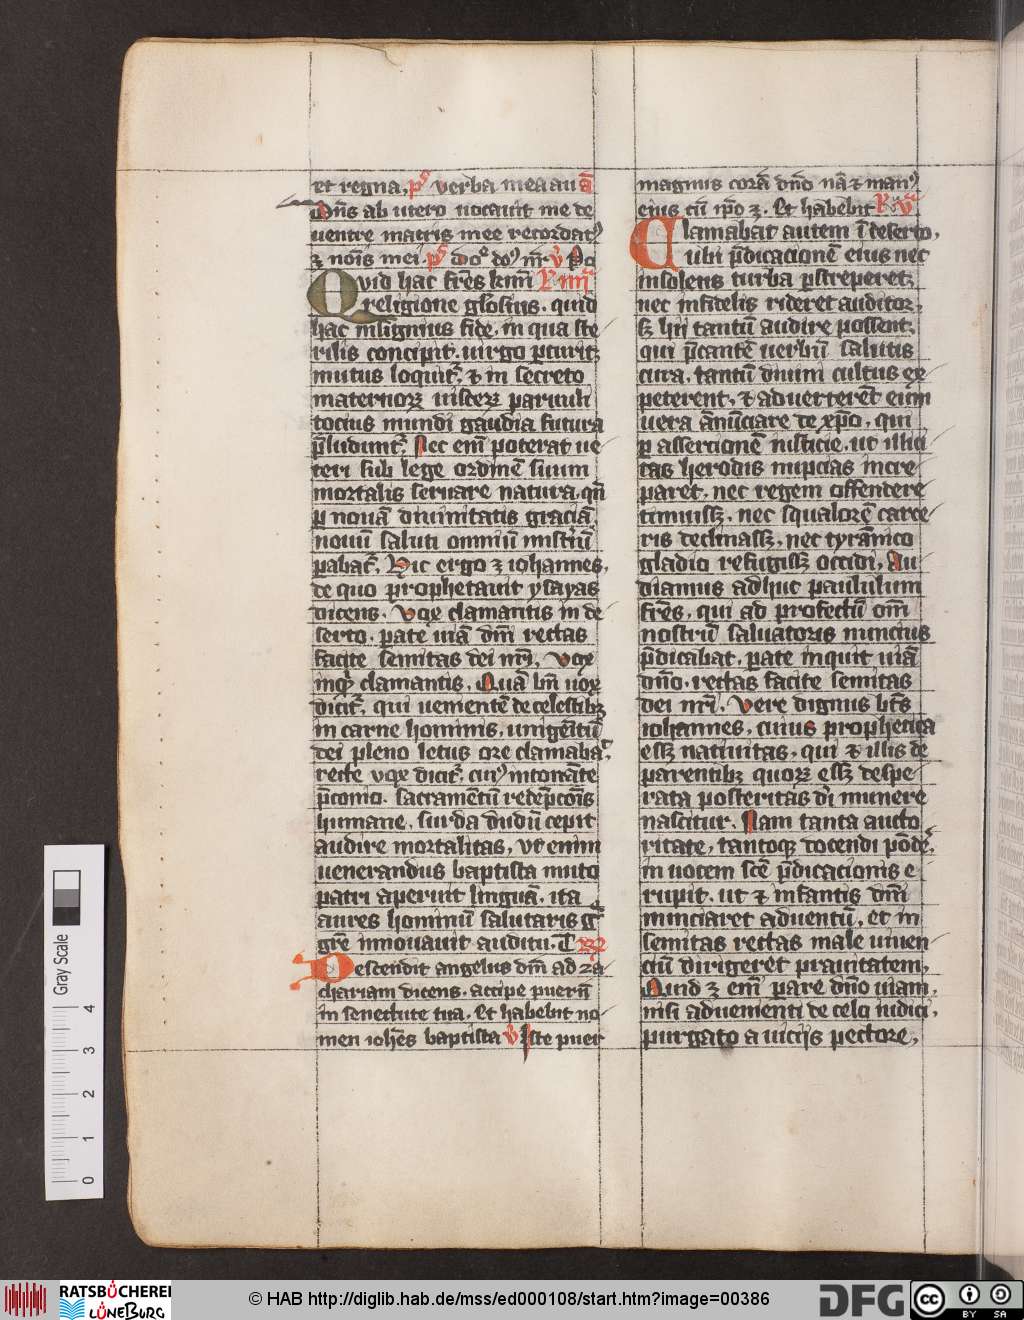 et regna, ps verba mea au a
Dn̄s ab utero uocauit me de
uentre matris mee recordatꝰ
ꝫ noīs mei. ps
Quid hac fr̄es km̄
religione gl̄osius. quid
hac insignius fide. in qua ste
rilis concipit. uirgo p̄turit
mutus loquitꝛ. et in secreto
maternoꝝ uisceꝝ paruuli
tocius mundi gaudia futura
p̄ludunt. Nec em̄ poterat ue
teri sub lege ordinē suum
mortalis seruare natura, qn̄
ꝑ nouā diuinitatis graciā,
nouū saluti omniū mist̄iū
parabat. Hic ergo ꝫ iohannes,
de quo prophetauit ysayas
dicens. Vox clamantis in de
serto. ꝑate uiā dn̄i rectas
facite semitas dei nr̄i. Vox
inqt clamantis. Quā bn̄ uox
dicit, qui uenientē de celestibꝫ
in carne hominis, unigēitū
dei pleno letus ore clamabat,
recte vox dicit, cuiꝰ intonāte
p̄conio. sacramētū redēpcōis
humane, surda dudū cepit
audire mortalitas, Vt enim
uenerandus baptista muto
patri aperuit linguā. ita
aures hominū salutaris
gr̄e innouauit auditu. T
Descendit angelus dn̄i ad za
chariam dicens. accipe puerū
in senectute tua. Et habebit no
men ioh̄es baptista v̄ Iste puer
magnus corā dn̄o nā et manꝰ
eius cū ip̄o ꝫ. Et habebit
Clamabat autem ī deserto,
ubi p̄dicacionē eius nec
insolens turba ꝑstreperet
nec infidelis rideret auditor,
sꝫ hii tantū audire possent,
qui p̄dicantē uerbū salutis
cura. tantū diuini cultus ex
peterent, et aduerterēt eum
uera ānūciare de xp̄o, qui
ꝑ assercionē iusticie. ut illici
tas herodis nupcias incre
paret. nec regem offendere
timuissꝫ, nec squalorē carce
ris declinassꝫ, nec tyrānico
gladio refugissꝫ occidi, Au
diamus adhuc paululum
fr̄es, qui ad profectū om̄
nostrū saluatoris nuncius
p̄dicabat. ꝑate inquit uiā
dn̄o. rectas facite semitas
dei nr̄i. Vere dignus bt̄s
iohannes, cuius prophetica
essꝫ natiuitas, qui et illis de
parentibꝫ quoꝝ essꝫ despe
rata posteritas di munere
nascitur. Nam tanta aucto
ritate, tantoqꝫ docendi pōde,
in uocem scē p̄dicacionis e
rupit. ut et infantis dn̄i
nunciaret aduentū, et in
semitas rectas male uiuen
ciū dirigeret prauitatem,
Quid ꝫ em̄ ꝑare dn̄o uiam,
nisi aduenienti de celo iudici,
purgato a uiciis pectore,
Gray Scale
0 1 2 3 4
RATSBÜCHEREI LÜNEBURG
© HAB http://diglib.hab.de/mss/ed000108/start.htm?image=00386
DFG
cc BY SA